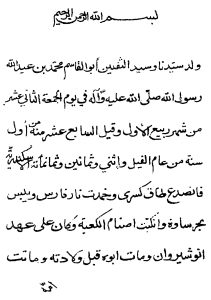 بسم الله الرحمن الرحيم
ولد سيدنا وسيد الثقلين ابو القاسم محمد بن عبد الله
رسول الله صلى الله عليه وآله في يوم الجمعة الثاني عشر
من شهر ربيع الاول وقيل السابع عشر منه من اول
سنة من عام الفيل واثني وثمانين وثمانمائة
فانصدع طاق كسرى وخمدت نار فارس ويبس
بحر ساوة وانكبت اصنام الكعبة وكان على عهد
انوشيروان ومات ابوه قبل ولادته وماتت